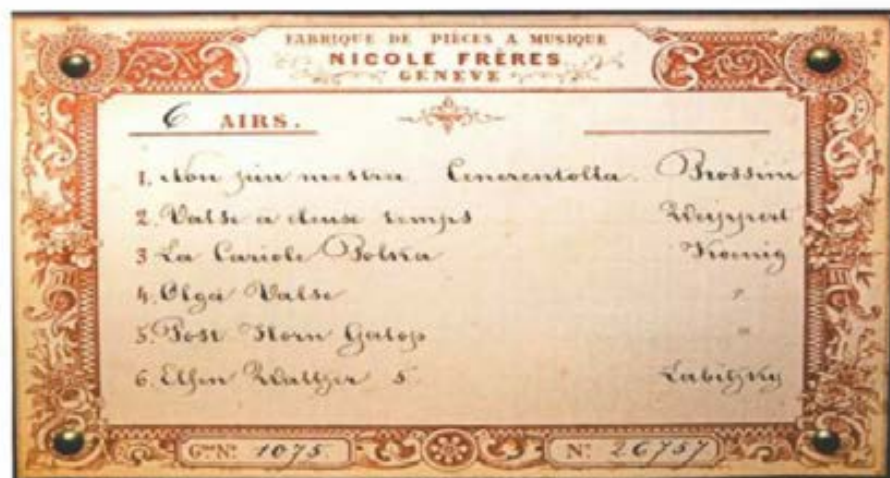 FABRIQUE DE PIÈCES A MUSIQUE
NICOLE FRÈRES
GENÈVE
6 AIRS.
1. Non piu mestra Cenerentolla. Rossini
2. Valse a deuse temps Weippert
3 La Cariole Polska Koenig
4. Olga Valse "
5. Post Horn Galop "
6. Elfen Waltzer 5. Labitzky
Gme No. 1075. No. 26757